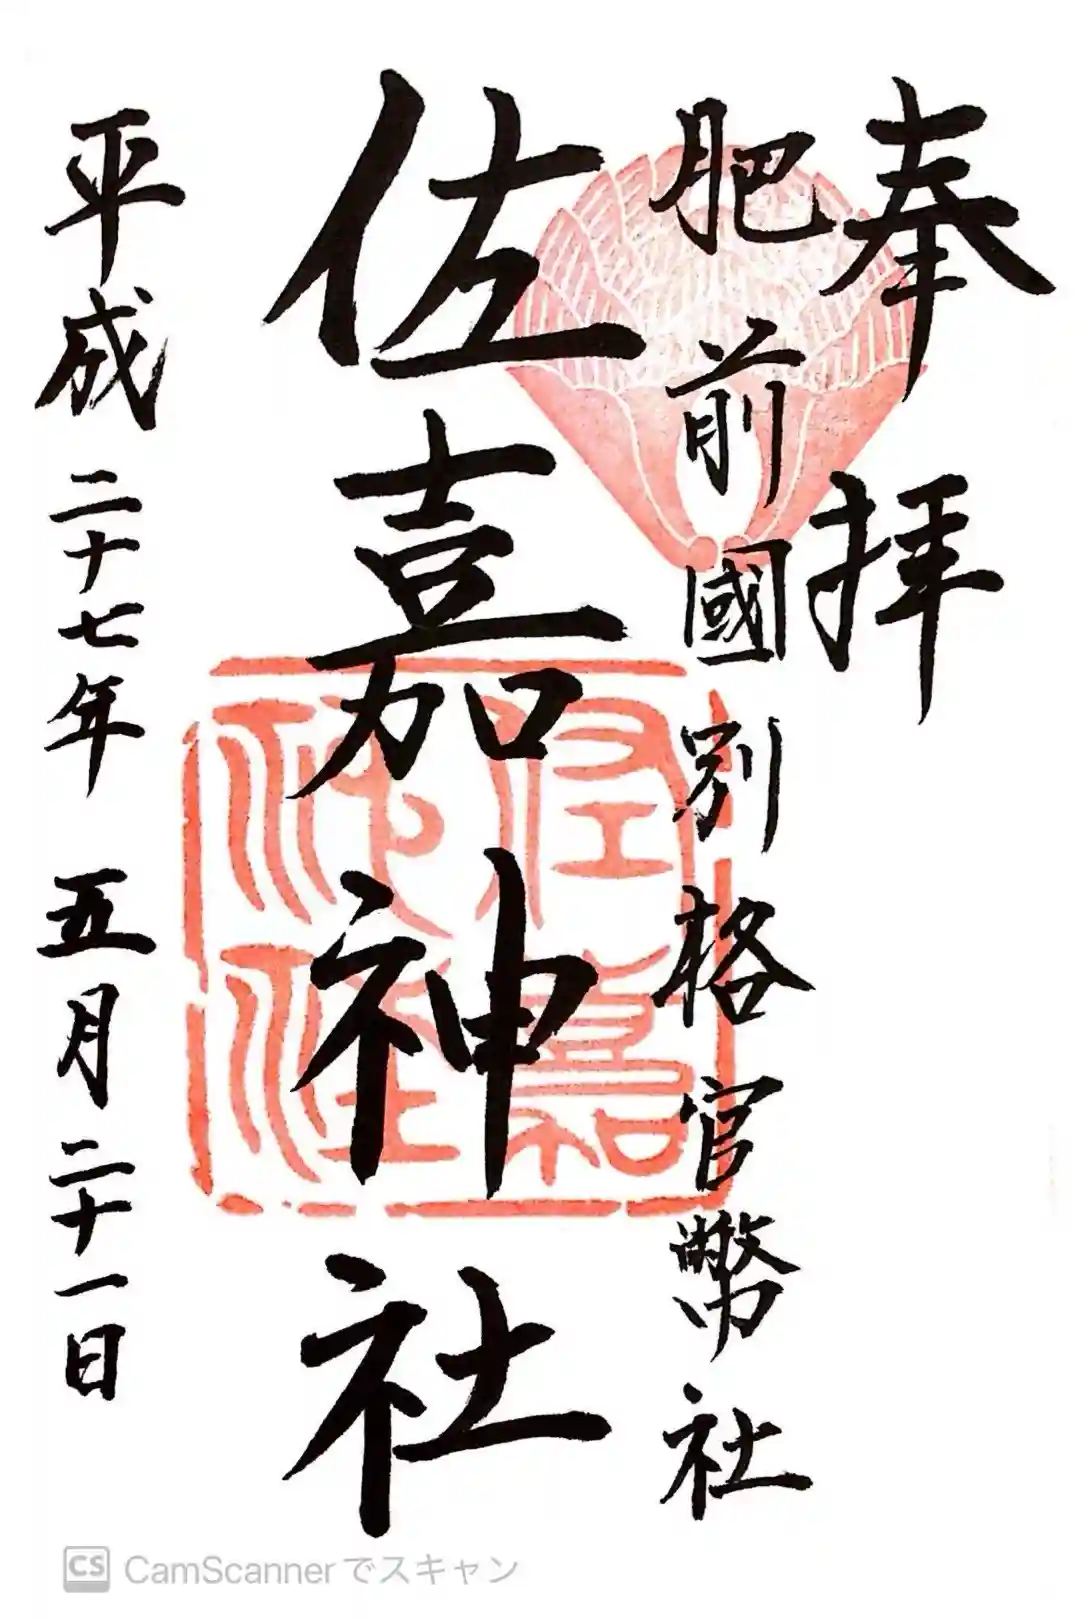 奉拝
肥前國別格官幣社
佐嘉神社
平成二十七年 五月二十一日
佐嘉神社
CS CamScannerでスキャン